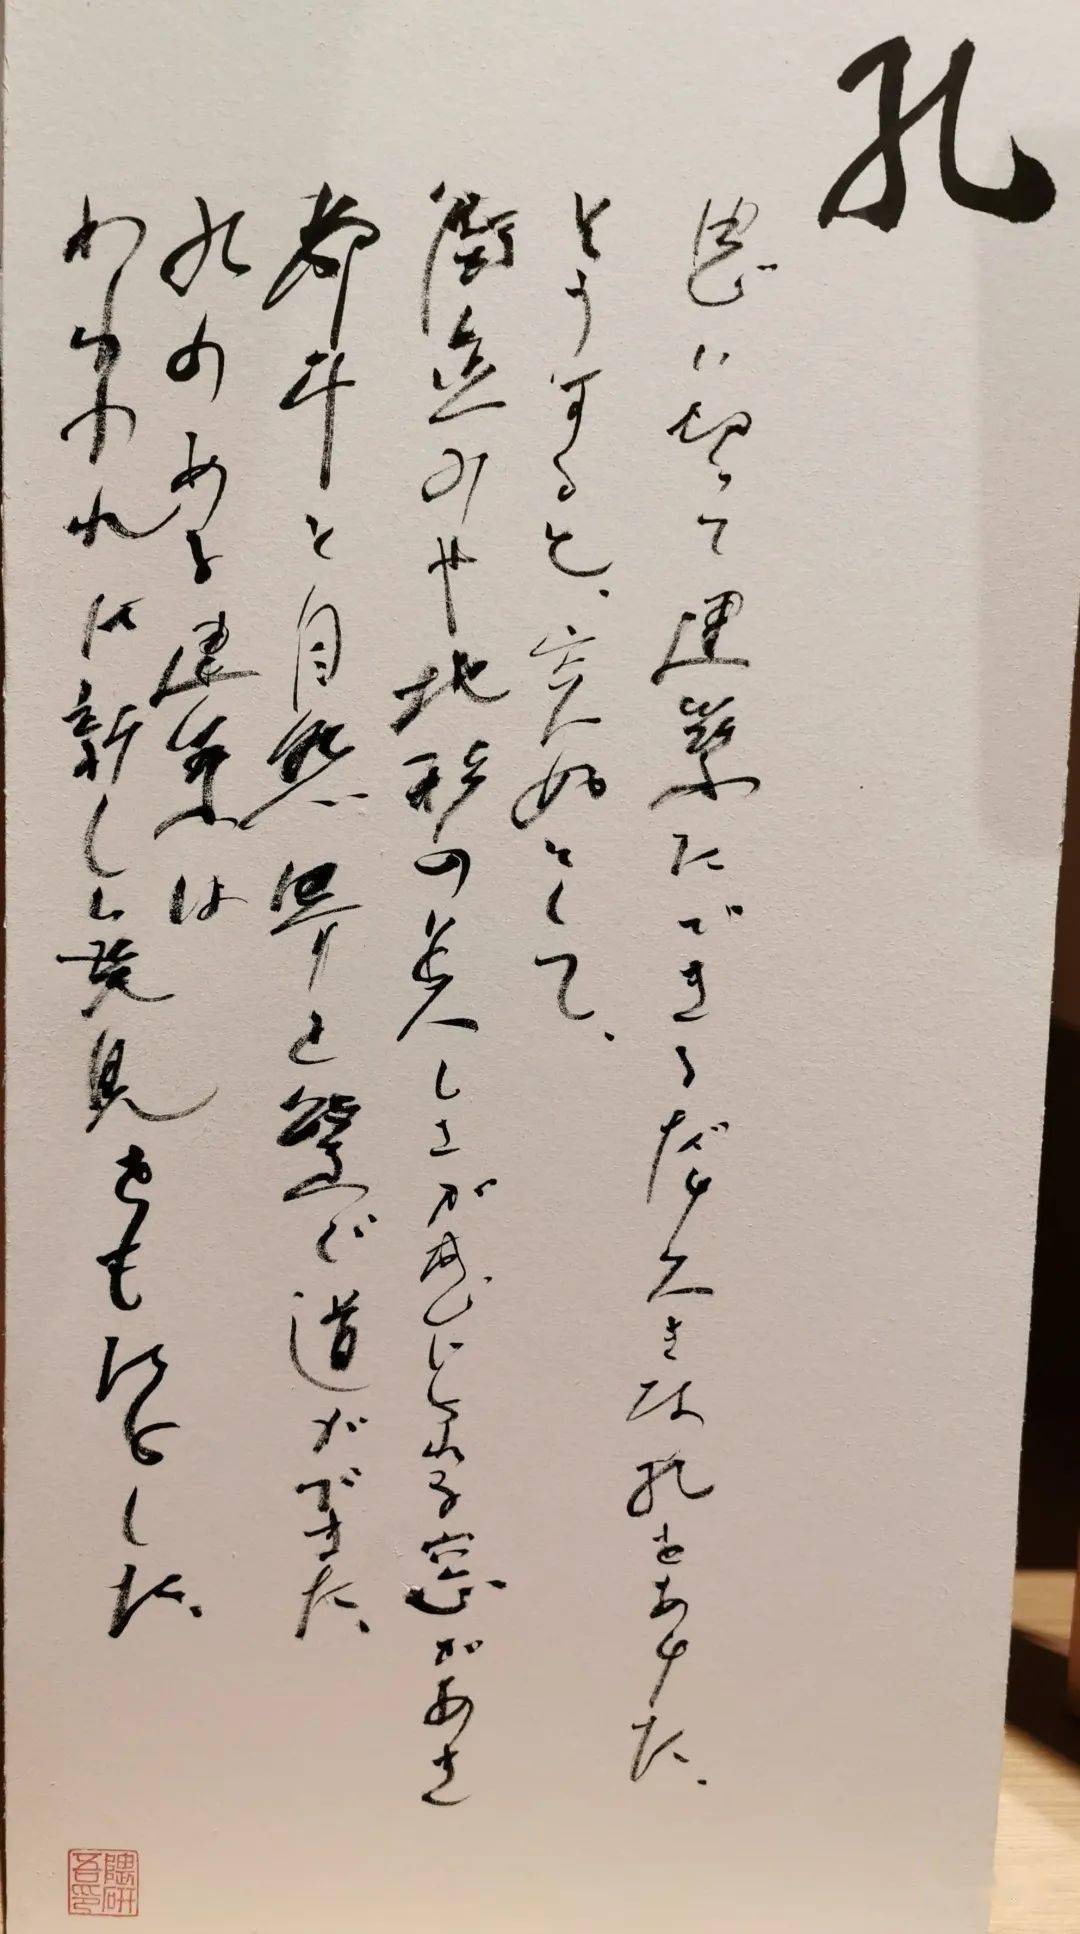 孔
思い切って建築にできるだけ大きな孔をあけた。
そうすると、突如として、
街並みや地形の美しさが感じられる窓があき
都市と自然界とを繋ぐ道ができた。
孔のある建築は
われわれに新しい発見をもたらした。
隈研吾印